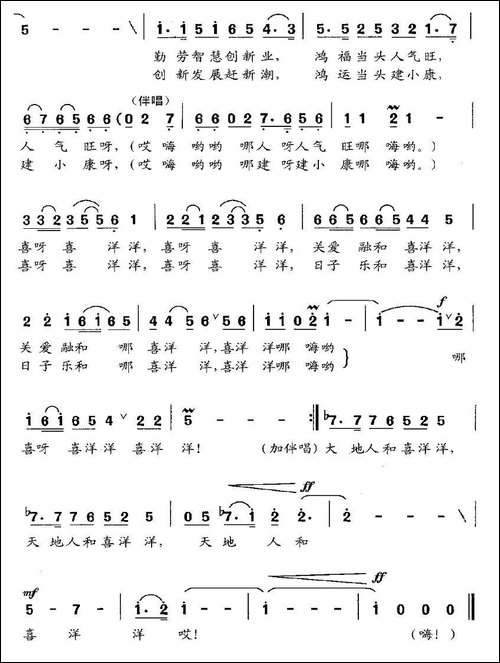 5 - - - \ | i· i 5 i 6 5 4· 3 | 5· 5 2 5 3 2 1· 7 |
勤劳智慧创新业, 鸿福当头人气旺,
创新发展赶新潮, 鸿运当头建小康,
(伴唱)
6 7 6 5 6 6 (0 2 7 | 6 6 0 2 7· 6 5 6 | 1 1 2 1 - |
人气旺呀,(哎嗨哟哟哪人呀人气旺哪嗨哟。)
建小康呀,(哎嗨哟哟哪建呀建小康哪嗨哟。)
3 3 2 3 5 5 6 1 | 2 2 1 2 3 3 5 6 | 6 6 5 6 5 4 4 5 |
喜呀喜洋洋,喜呀喜洋洋,关爱融和喜洋洋,
喜呀喜洋洋,喜呀喜洋洋,日子乐和喜洋洋,
f
2 2 i 6 i 6 5 | 4 4 5 6 ∨ 5 6 | i i 0 2 i - | i - - i ∨ 2 |
关爱融和哪喜洋洋,喜洋洋哪嗨哟
日子乐和哪喜洋洋,喜洋洋哪嗨哟 } 哪
i 6 i 6 5 4 ∨ 2 2 | 5 - - - :‖ ♭7· 7 7 6 5 2 5 |
喜呀喜洋洋喜洋洋! (加伴唱)天地人和喜洋洋,
ff
♭7· 7 7 6 5 2 5 | 0 5 ♭7· i 2 2· | 2 - - - \ |
天地人和喜洋洋, 天地人和
mf ff
5 - 7 - | i· 2 i - | i - i - | i 0 0 0 ‖
喜洋洋哎! (嗨!)